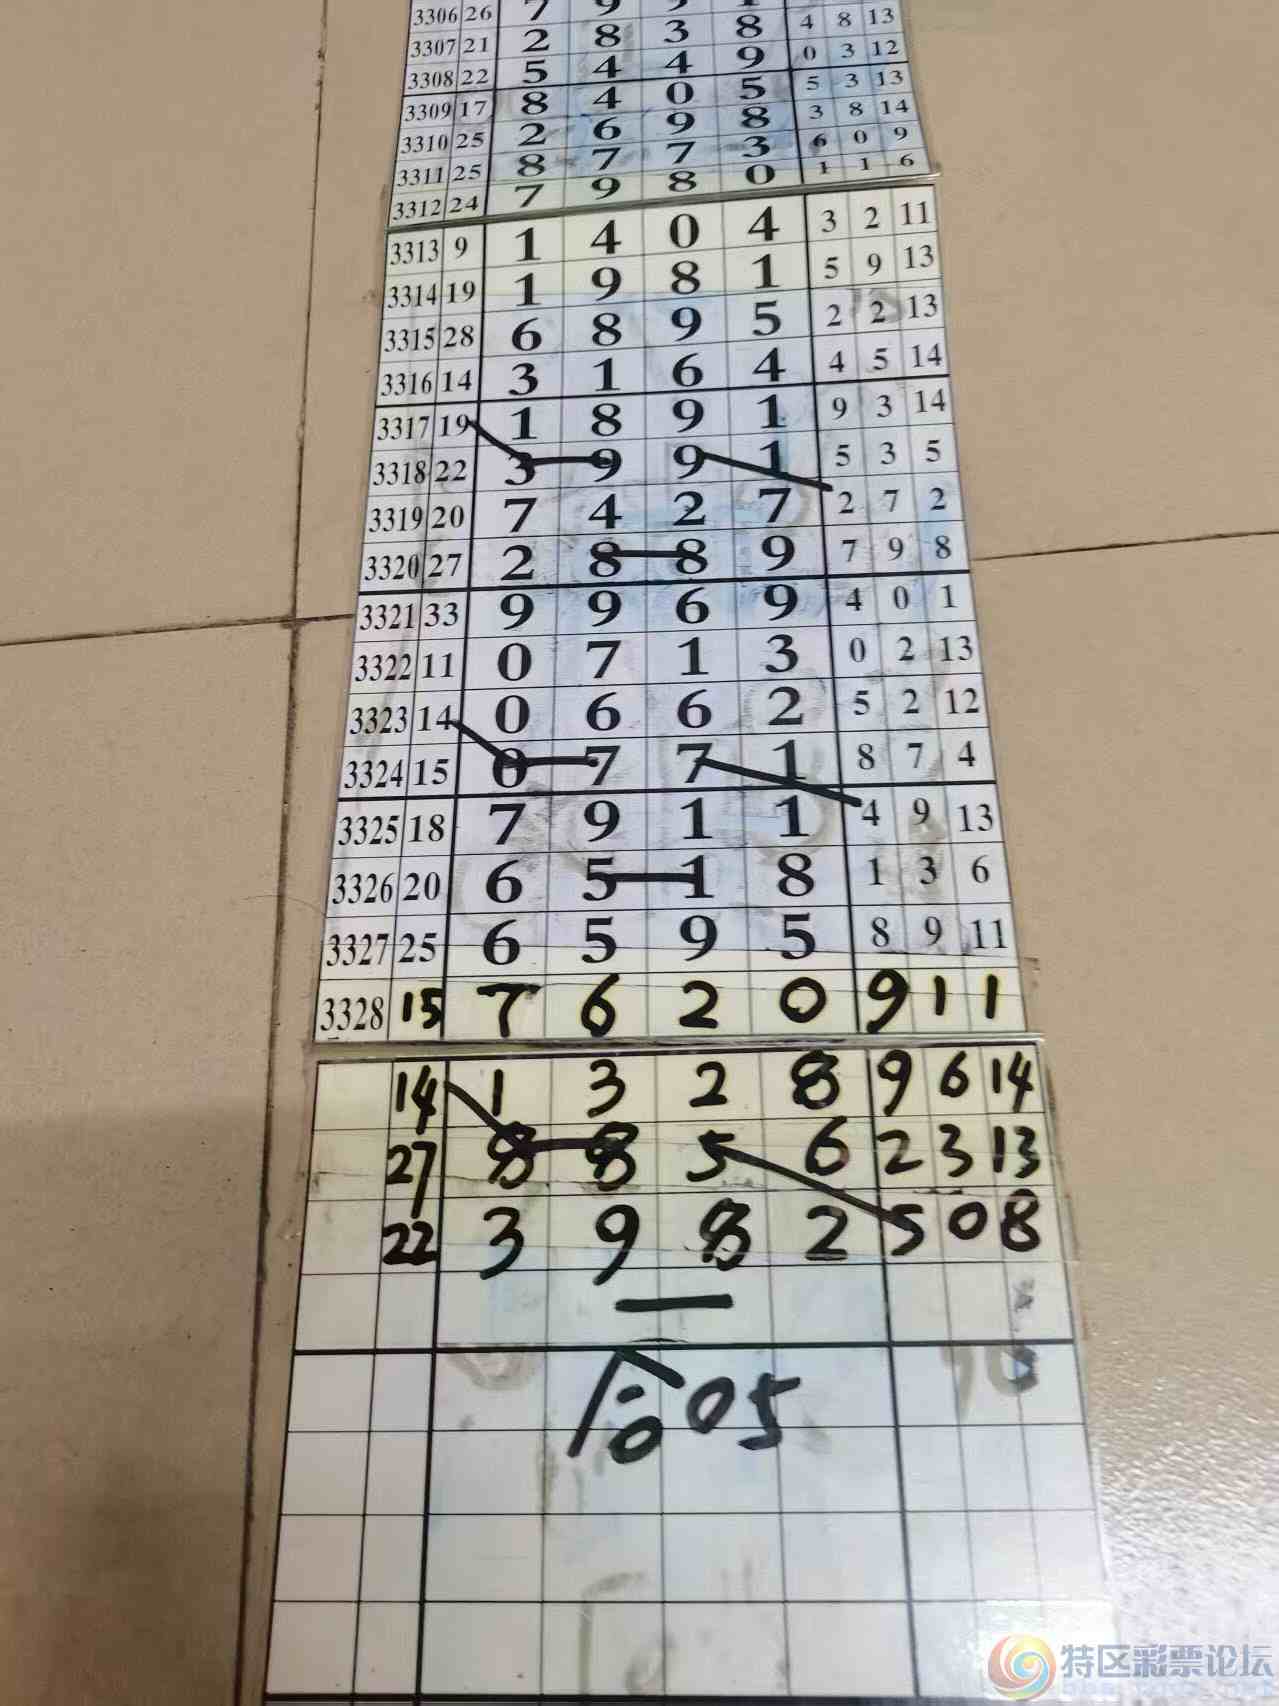 3306 26 7 9 9 1 4 8 13
3307 21 2 8 3 8 0 3 12
3308 22 5 4 4 9 5 3 13
3309 17 8 4 0 5 3 8 14
3310 25 2 6 9 8 6 0 9
3311 25 8 7 7 3 1 1 6
3312 24 7 9 8 0
3313 9 1 4 0 4 3 2 11
3314 19 1 9 8 1 5 9 13
3315 28 6 8 9 5 2 2 13
3316 14 3 1 6 4 4 5 14
3317 19 1 8 9 1 9 3 14
3318 22 3 9 9 1 5 3 5
3319 20 7 4 2 7 2 7 2
3320 27 2 8 8 9 7 9 8
3321 33 9 9 6 9 4 0 1
3322 11 0 7 1 3 0 2 13
3323 14 0 6 6 2 5 2 12
3324 15 0 7 7 1 8 7 4
3325 18 7 9 1 1 4 9 13
3326 20 6 5 1 8 1 3 6
3327 25 6 5 9 5 8 9 11
3328 15 7 6 2 0 9 1 1
14 1 3 2 8 9 6 14
27 8 8 5 6 2 3 13
22 3 9 8 2 5 0 8
合05
特区彩票论坛